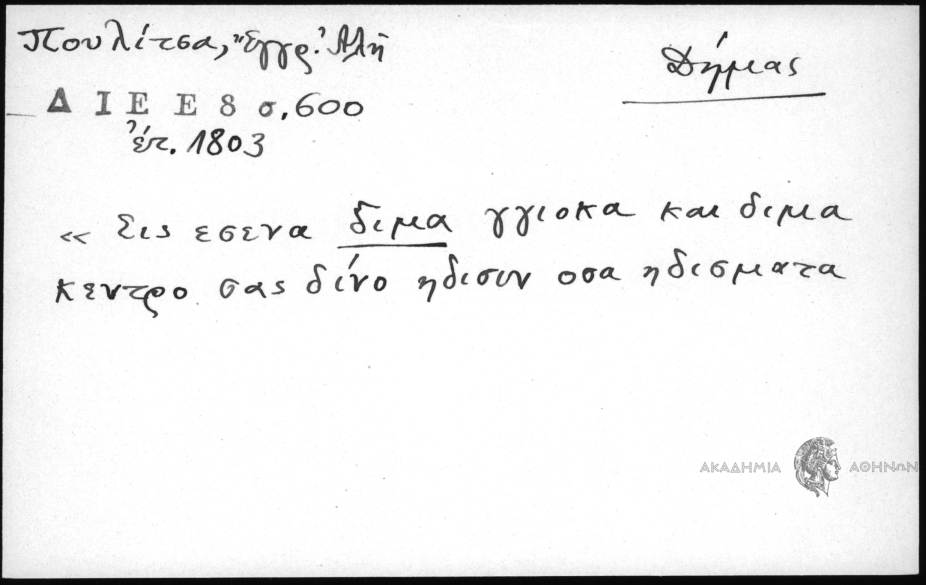 Πουλίτσα, Ἔγγρ. Ἀλῆ
Δήμας
Δ Ι Ε Ε 8 σ. 600
ἔτ. 1803
« Σις εσενα διμα γγιοκα και διμα
κεντρο σας δίνο ηδισιν οσα ηδισματα
ΑΚΑΔΗΜΙΑ ΑΘΗΝΩΝ